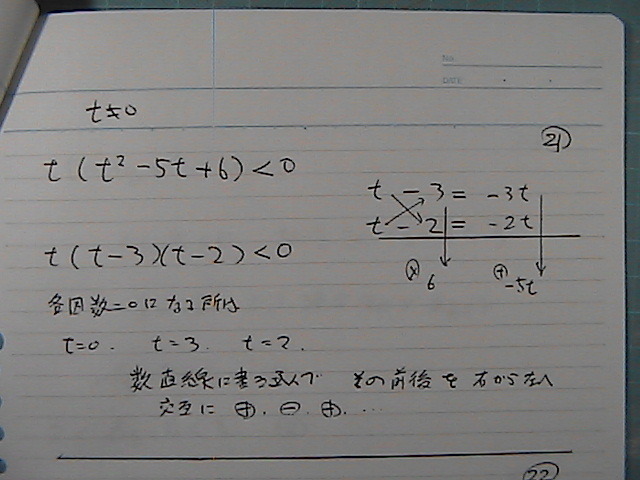 No.
DATE
t≠0
㉑
t(t²-5t+6)<0
t - 3 = -3t
t - 2 = -2t
⊗ 6 ⊕ -5t
t(t-3)(t-2)<0
各因数=0になる所は
t=0. t=3. t=2.
数直線に書き込んで その前後を右から左へ
交互に ⊕. ⊖. ⊕. ...
㉒